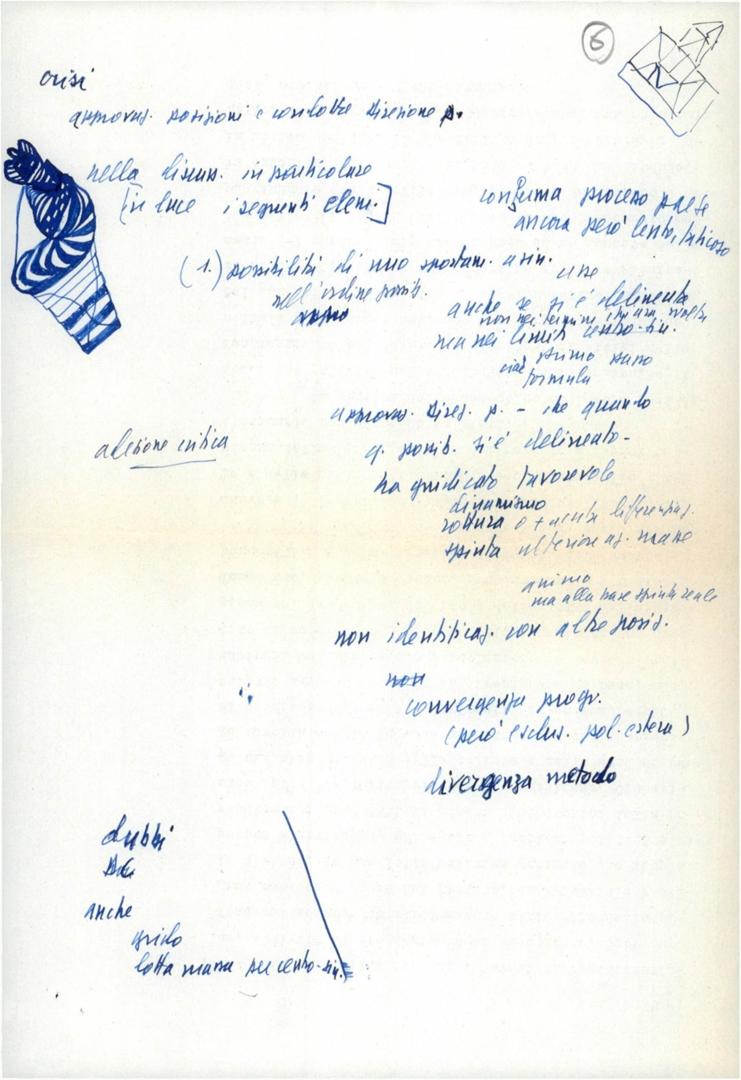 6
crisi
approvaz. posizioni e condotta direzione p.
nella discuss. in particolare
[in luce i seguenti elem.]
conferma processo paese
ancora però lento, faticoso
(1.) possibilità di uno spostam. a sin.
nell'ordine possib.
anche se si è delineata
non nei termini
ma nei limiti centro-sin.
cioè primo passo
formula
approvaz. direz. p. - che quando
q. possib. si è delineato -
adesione critica
ha giudicato favorevole
dinamismo
rottura o differenziaz.
spinta ulteriore az. masse
animo
ma alla base spinta reale
non identificaz. con altre posiz.
non
convergenza progr.
(però esclus. pol. estera)
divergenza metodo
dubbi
DC
anche
grido
lotta massa su centro-sin.